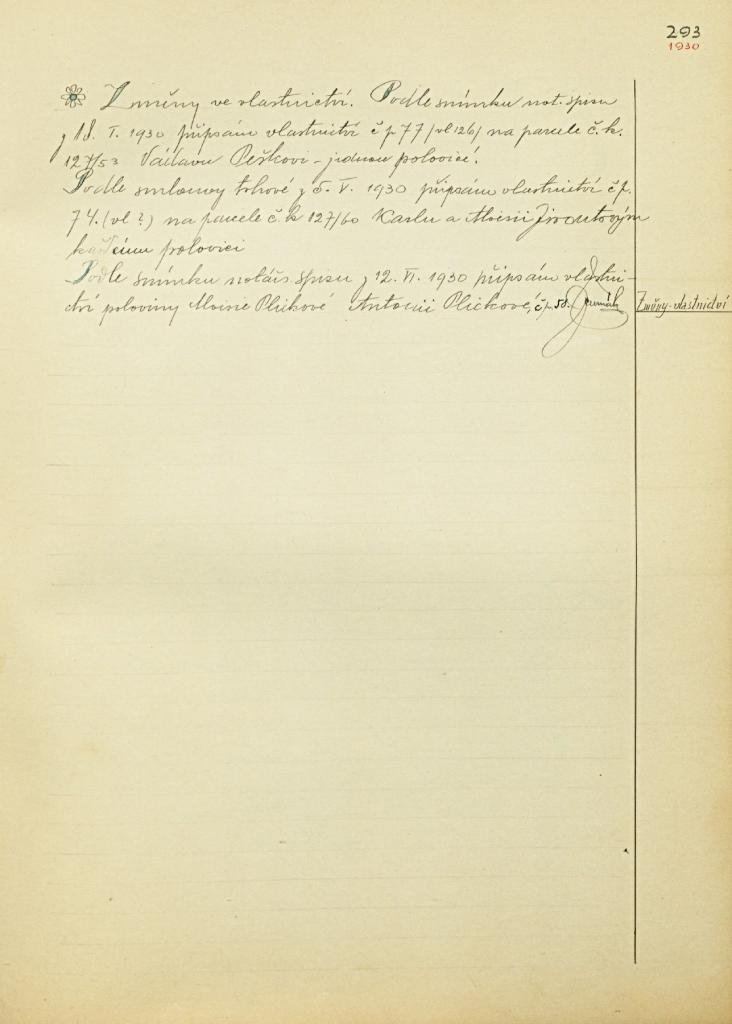 293
1930
Změny ve vlastnictví. Podle snímku not. spisu
z 18. I. 1930 připsáno vlastnictví č p. 77 (vl 126) na parcele č. k.
127/53 Václavu Peškovi – jednou polovicí.
Podle smlouvy trhové z 5. V. 1930 připsáno vlastnictví č p.
74. (vl ?) na parcele č. k 127/60 Karlu a Aloisii
každému polovici
Podle snímku notářs. spisu z 12. VI. 1930 připsáno vlastni-
ctví poloviny Aloisie Plickové Antonii Plickove, č p. 58.
Změny vlastnictví